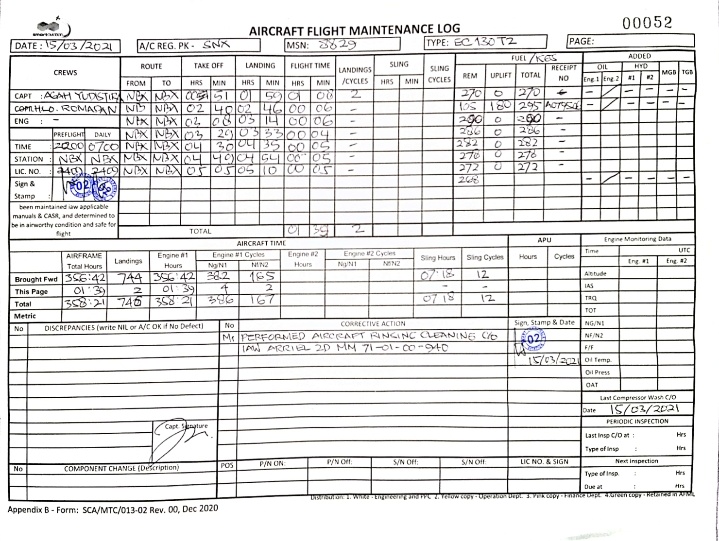 smartaviation
AIRCRAFT FLIGHT MAINTENANCE LOG
00052
DATE : 15/03/2021 A/C REG. PK - SNX MSN: 8829 TYPE: EC 130 T2 PAGE:
CREWS ROUTE TAKE OFF LANDING FLIGHT TIME LANDINGS /CYCLES SLING SLING CYCLES FUEL / KGS ADDED
FROM TO HRS MIN HRS MIN HRS MIN HRS MIN REM UPLIFT TOTAL RECEIPT NO OIL HYD MGB TGB
Eng.1 Eng.2 #1 #2
CAPT : AGAH YUDISTIRA NBX NBX 51 01 59 01 08 2 270 0 270 -
NBX NBX 02 40 02 46 00 06 - 105 180
ENG : - NBX NBX 03 08 03 14 00 06 - 290 0 290 -
PREFLIGHT DAILY NBX NBX 03 29 03 33 00 04 - 286 0 286 -
TIME 2200 0700 NBX NBX 04 30 04 35 00 05 - 282 0 282 -
STATION : NBX NBX NBX NBX 04 49 04 54 00 05 - 278 0 278 -
LIC. NO. : 2409 2409 NBX NBX 05 05 05 10 00 05 - 272 0 272 -
Sign & Stamp : 02 268
been maintained iaw applicable manuals & CASR, and determined to be in airworthy condition and safe for flight
TOTAL 01 39 2
AIRCRAFT TIME
AIRFRAME Total Hours Landings Engine #1 Hours Engine #1 Cycles Engine #2 Hours Engine #2 Cycles Sling Hours Sling Cycles APU Engine Monitoring Data
Ng/N1 Nf/N2 Ng/N1 Nf/N2 Hours Cycles Time : UTC
Eng. #1 Eng. #2
Brought Fwd 356:42 744 356:42 382 165 07:18 12 Altitude
This Page 01:39 2 01:39 4 2 - - IAS
Total 358:21 746 358:21 386 167 07 18 12 TRQ
Metric TOT
No DISCREPANCIES (write NIL or A/C OK if No Defect) No CORRECTIVE ACTION Sign, Stamp & Date NG/N1
PERFORMED AIRCRAFT RINSING CLEANING C/O 02 NF/N2
IAW ARRIEL 2D MM 71-01-00-940 F/F
15/03/2021 Oil Temp.
Oil Press
OAT
Last Compressor Wash C/O
Date 15/03/2021
PERIODIC INSPECTION
Capt. Signature
Last Insp C/O at : Hrs
Type of Insp :
No COMPONENT CHANGE (Description) POS P/N ON: P/N Off: S/N Off: S/N Off: LIC NO. & SIGN Next Inspection
Type of Insp. : Hrs
Due at : Hrs
Distribution: 1. White - Engineering and PPC 2. Yellow copy - Operation Dept. 3. Pink copy - Finance Dept. 4.Green copy - Retained in AFML
Appendix B - Form: SCA/MTC/013-02 Rev. 00, Dec 2020